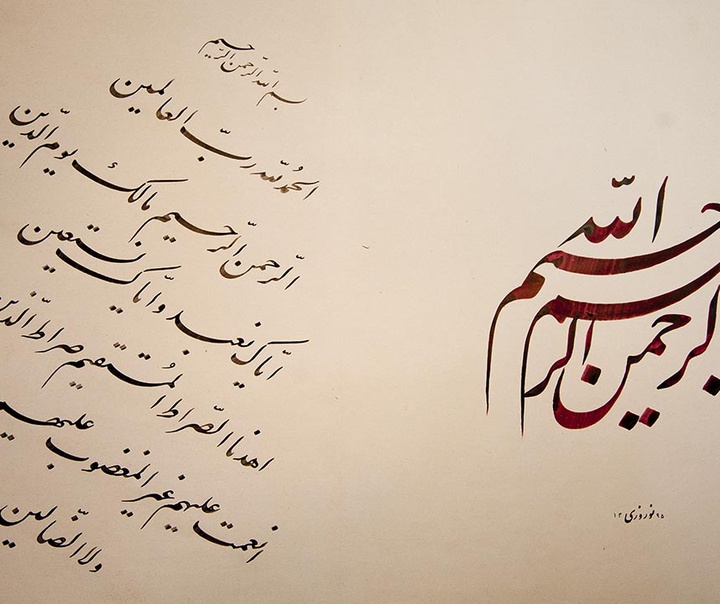 بسم الله الرّحمن الرّحیم
الحمدُ للّه ربّ العالمین
الرّحمن الرّحیم مالک یوم الدّین
ایّاک نعبد و ایّاک نستعین
اهدنا الصّراط المُستقیم صراط الّذین
انعمت علیهم غیر المغضوب علیهم
ولا الضّالّین
الله
الرحمن الرحیم
۱۳ نوروزی ۹۵